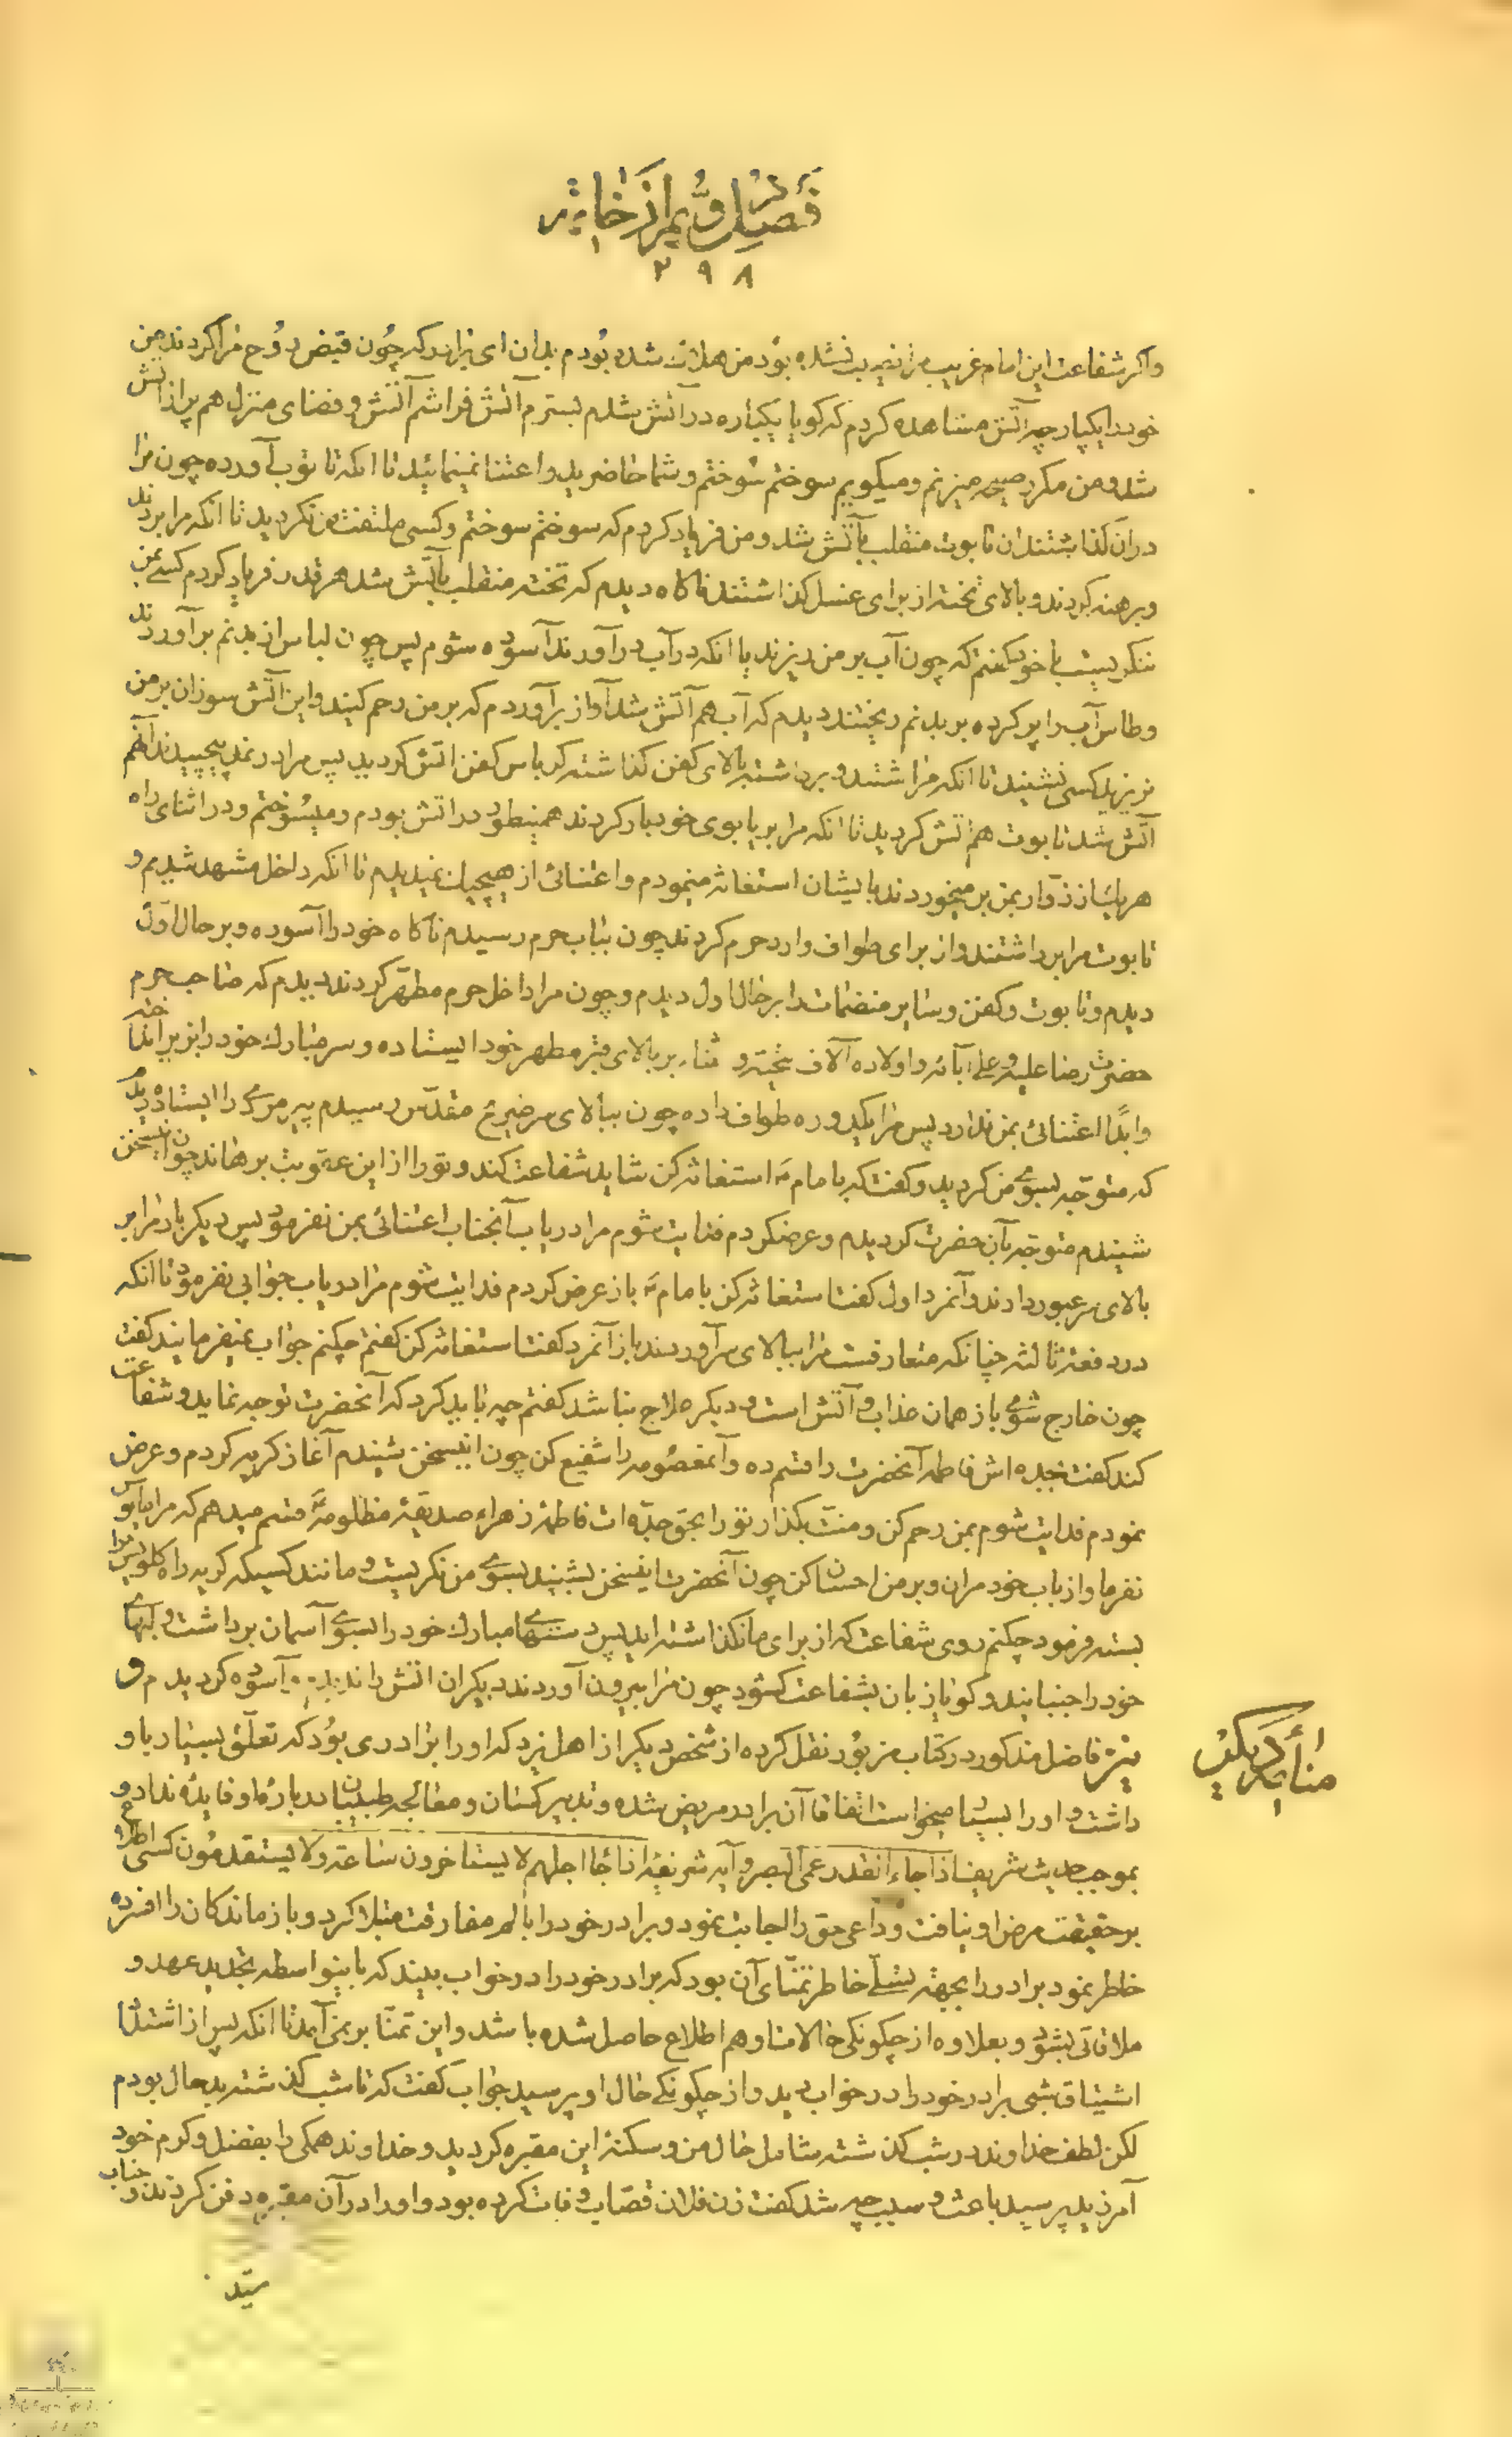 فصل دویم از خاتمه
۲۹۸
واگر شفاعت این امام غریب مرا نصیب نشده بود من هلاک شده بودم بدان ای برادر که چون قبض روح مرا کردند من
خود را یکپارچه آتش مشاهده کردم که کویا یکباره در آتش شدم بسترم آتش فراشم آتش و فضای منزل هم پر از آتش
شد و من مکرر صیحه میزنم و میکویم سوختم سوختم و شما حاضرید و اعتنا نمینمائید تا انکه تابوت آورده چون مرا
در آن کذاشتند ان تابوت منقلب بآتش شد و من فریاد کردم که سوختم سوختم و کسی ملتفت من نکردید تا انکه مرا بردند
و برهنه کردند و بالای تخته از برای غسل کذاشتند ناکاه دیدم که تخته منقلب بآتش شد هر قدر فریاد کردم کسی بمن
ننکریست با خود کفتم که چون آب بر من ریزند یا انکه در آب در آورند آسوده شوم پس چون لباس از بدنم برآوردند
و طاس آب را پر کرده بر بدنم ریختند دیدم که آب هم آتش شد آواز برآوردم که بر من رحم کنید و این آتش سوزان بر من
نریزید کسی نشنید تا انکه مرا شستند و برداشته بالای کفن کذاشته کرباس کفن اتش کردید پس مرا در نمد پیچیدند آنهم
آتش شد تابوت هم اتش کردید تا انکه مرا بر یابوی خود بار کردند همینطور در اتش بودم و میسوختم و در اثنای راه
هر یک از زوار بمن بر میخوردند بایشان استغاثه مینمودم و اعتنائی از هیچیک ندیدم تا انکه داخل مشهد شدیم و
تابوت مرا برداشتند و از برای طواف وارد حرم کردند چون بباب حرم رسیدم ناکاه خود را آسوده و بر حال اول
دیدم و تابوت و کفن و سایر منضمات را بر حال اول دیدم و چون مرا داخل حرم مطهر کردند دیدم که صاحب حرم
حضرت رضا علیه و علی آبائه و اولاده آلاف تحیته و ثناء بر بالای قبر مطهر خود ایستاده و سر مبارک خود را بزیر انداخته
و ابدا اعتنائی بمن ندارد پس مرا یکدوره طواف داده چون ببالای سر ضریح مقدس رسیدم پیر مردی را ایستاده دیدم
که متوجه بسوی من کردید و کفت که بامام ع استغاثه کن شاید شفاعت کند و تو را از این عقوبت برهاند چون اینسخن
شنیدم متوجه بآن حضرت کردیدم و عرضکردم فدایت شوم مرا دریاب آنجناب اعتنائی بمن نفرمود پس دیکر بار مرا بر
بالای سر عبور دادند و آنمرد اول کفت استغاثه کن بامام ع باز عرض کردم فدایت شوم مرا دریاب جوابی نفرمود تا انکه
در دفعه ثالثه چنانکه متعارفست مرا ببالای سر آوردند باز آنمرد کفت استغاثه کن کفتم چکنم جواب نمیفرمایند کفت
چون خارج شوی باز همان عذاب و آتش است و دیکر علاج نباشد کفتم چه باید کرد که آنحضرت توجه نماید و شفاعت
کند کفت بجده اش فاطمه آنحضرت را قسم ده و آنمعصومه را شفیع کن چون اینسخن شنیدم آغاز کریه کردم و عرض
نمودم فدایت شوم بمن رحم کن و منت بکذار تو را بحق جده ات فاطمه زهراء صدیقه مظلومه قسم میدهم که مرا مایوس
نفرما و از باب خود مران و بر من احسان کن چون آنحضرت اینسخن بشنید بسوی من نکریست و مانند کسیکه کریه راه کلویش را
بسته فرمود چکنم روی شفاعت که از برای ما نکذاشته اید پس دستهای مبارک خود را بسوی آسمان برداشت و لبهای
خود را جنبانید و کویا زبان بشفاعت کشود چون مرا بیرون آوردند دیکر ان اتش را ندیدم و آسوده کردیدم و
نیز فاضل مذکور در کتاب مزبور نقل کرده از شخص دیکر از اهل یزد که او را برادری بود که تعلق بسیار باو
داشت و او را بسیار میخواست اتفاقا آن برادر مریض شده و تدبیر کسان و معالجه طبیبان در باره او فایده نداد و
بموجب حدیث شریف اذا جاء القدر عمی البصر و آیه شریفه اذا جاء اجلهم لا یستاخرون ساعته و لا یستقدمون کسی اطلاع
بر حقیقت مرض او نیافت و داعی حق را اجابت نمود و برادر خود را بالم مفارقت مبتلا کرد و بازماندکان را افسرده
خاطر نمود برادر را بجهته تسلی خاطر تمنای آن بود که برادر خود را در خواب بیند که باینواسطه تجدید عهد و
ملاقاتی بشود و بعلاوه از چکونکی حالات او هم اطلاع حاصل شده باشد و این تمنا بر نمیآمد تا انکه پس از اشتداد
اشتیاق شبی برادر خود را در خواب دید و از چکونکی حال او پرسید جواب کفت که تا شب کذشته بد حال بودم
لکن لطف خداوند در شب کذشته شامل حال من و سکنه این مقبره کردید و خداوند همکی را بفضل و کرم خود
آمرزید پرسید باعث و سبب چه شد کفت زن فلان قصاب وفات کرده بود و او را در آن مقبره دفن کردند و جناب
سید
منام دیکری